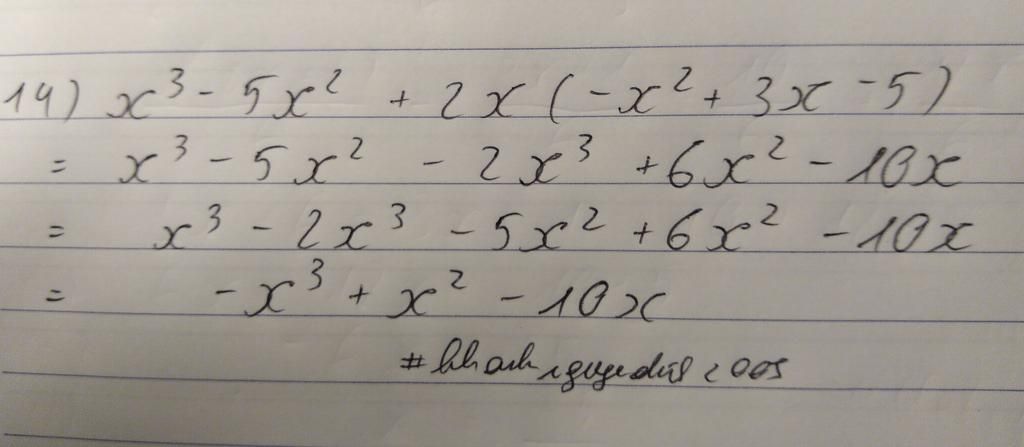 14) x³ - 5x² + 2x (-x² + 3x - 5)
= x³ - 5x² - 2x³ + 6x² - 10x
= x³ - 2x³ - 5x² + 6x² - 10x
= -x³ + x² - 10x